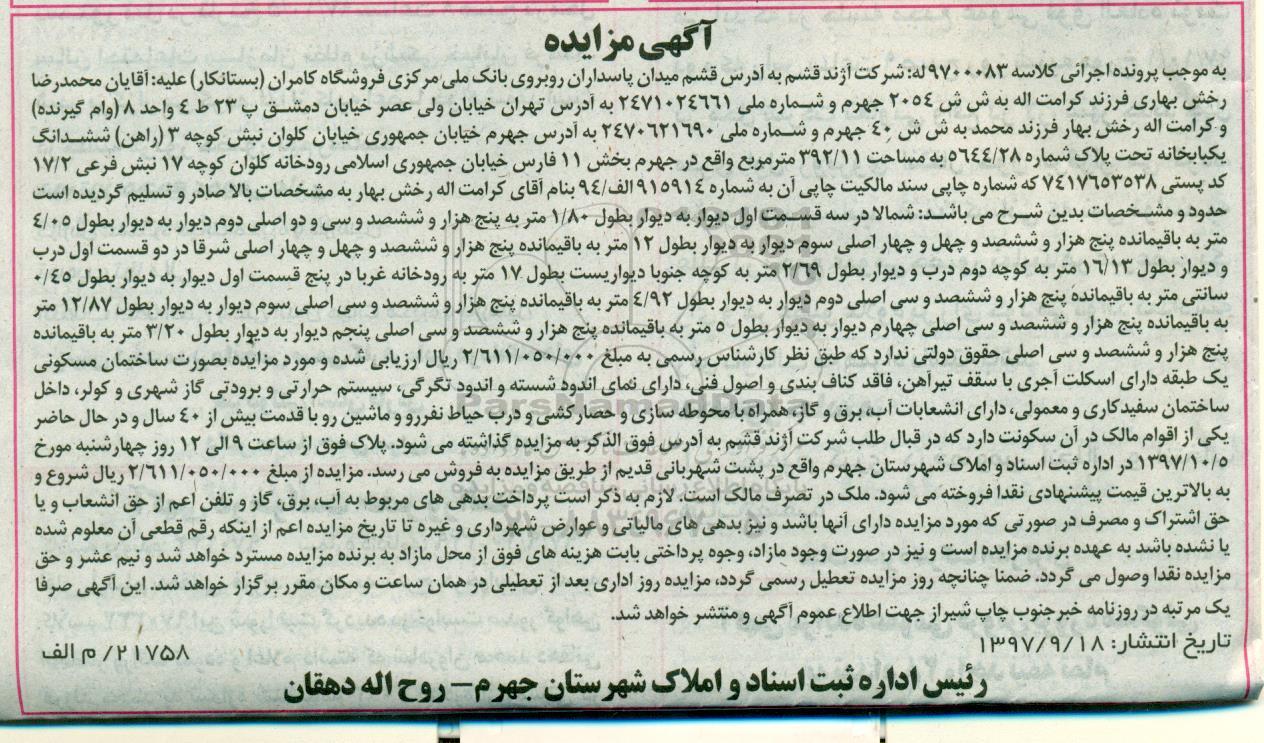 آگهی مزایده
به موجب پرونده اجرائی کلاسه ۹۷۰۰۰۸۳ له: شرکت آژند قشم به آدرس قشم میدان پاسداران روبروی بانک ملی مرکزی فروشگاه کامران (بستانکار) علیه: آقایان محمدرضا
رخش بهاری فرزند کرامت اله به ش ش ۲۰۵٤ جهرم و شماره ملی ۲٤۷۱۰۲٤٦٦۱ به آدرس تهران خیابان ولی عصر خیابان دمشق پ ۲۳ ط ٤ واحد ۸ (وام گیرنده)
و کرامت اله رخش بهار فرزند محمد به ش ش ٤۰ جهرم و شماره ملی ۲٤۷۰٦۲۱٦۹۰ به آدرس جهرم خیابان جمهوری خیابان کلوان نبش کوچه ۳ (راهن) ششدانگ
یکبابخانه تحت پلاک شماره ۵٦٤٤/۲۸ به مساحت ۳۹۲/۱۱ مترمربع واقع در جهرم بخش ۱۱ فارس خیابان جمهوری اسلامی رودخانه کلوان کوچه ۱۷ نبش فرعی ۱۷/۲
کد پستی ۷٤۱۷٦۵۳۵۳۸ که شماره چاپی سند مالکیت چاپی آن به شماره ۹۱۵۹۱٤ الف/۹٤ بنام آقای کرامت اله رخش بهار به مشخصات بالا صادر و تسلیم گردیده است
حدود و مشخصات بدین شرح می باشد: شمالا در سه قسمت اول دیوار به دیوار بطول ۱/۸۰ متر به پنج هزار و ششصد و سی و دو اصلی دوم دیوار به دیوار بطول ٤/۰۵
متر به باقیمانده پنج هزار و ششصد و چهل و چهار اصلی سوم دیوار به دیوار بطول ۱۲ متر به باقیمانده پنج هزار و ششصد و چهل و چهار اصلی شرقا در دو قسمت اول درب
و دیوار بطول ۱٦/۱۳ متر به کوچه دوم درب و دیوار بطول ۲/٦۹ متر به کوچه جنوبا دیواریست بطول ۱۷ متر به رودخانه غربا در پنج قسمت اول دیوار به دیوار بطول ۰/٤۵
سانتی متر به باقیمانده پنج هزار و ششصد و سی اصلی دوم دیوار به دیوار بطول ٤/۹۲ متر به باقیمانده پنج هزار و ششصد و سی اصلی سوم دیوار به دیوار بطول ۱۲/۸۷ متر
به باقیمانده پنج هزار و ششصد و سی اصلی چهارم دیوار به دیوار بطول ۵ متر به باقیمانده پنج هزار و ششصد و سی اصلی پنجم دیوار به دیوار بطول ۳/۲۰ متر به باقیمانده
پنج هزار و ششصد و سی اصلی حقوق دولتی ندارد که طبق نظر کارشناس رسمی به مبلغ ۲/٦۱۱/۰۵۰/۰۰۰ ریال ارزیابی شده و مورد مزایده بصورت ساختمان مسکونی
یک طبقه دارای اسکلت آجری با سقف تیرآهن، فاقد کناف بندی و اصول فنی، دارای نمای اندود شسته و اندود تگرگی، سیستم حرارتی و برودتی گاز شهری و کولر، داخل
ساختمان سفیدکاری و معمولی، دارای انشعابات آب، برق و گاز، همراه با محوطه سازی و حصارکشی و درب حیاط نفررو و ماشین رو با قدمت بیش از ٤۰ سال و در حال حاضر
یکی از اقوام مالک در آن سکونت دارد که در قبال طلب شرکت آژند قشم به آدرس فوق الذکر به مزایده گذاشته می شود. پلاک فوق از ساعت ۹ الی ۱۲ روز چهارشنبه مورخ
۱۳۹۷/۱۰/۵ در اداره ثبت اسناد و املاک شهرستان جهرم واقع در پشت شهربانی قدیم از طریق مزایده به فروش می رسد. مزایده از مبلغ ۲/٦۱۱/۰۵۰/۰۰۰ ریال شروع و
به بالاترین قیمت پیشنهادی نقدا فروخته می شود. ملک در تصرف مالک است. لازم به ذکر است پرداخت بدهی های مربوط به آب، برق، گاز و تلفن اعم از حق انشعاب و یا
حق اشتراک و مصرف در صورتی که مورد مزایده دارای آنها باشد و نیز بدهی های مالیاتی و عوارض شهرداری و غیره تا تاریخ مزایده اعم از اینکه رقم قطعی آن معلوم شده
یا نشده باشد به عهده برنده مزایده است و نیز در صورت وجود مازاد، وجوه پرداختی بابت هزینه های فوق از محل مازاد به برنده مزایده مسترد خواهد شد و نیم عشر و حق
مزایده نقدا وصول می گردد. ضمنا چنانچه روز مزایده تعطیل رسمی گردد، مزایده روز اداری بعد از تعطیلی در همان ساعت و مکان مقرر برگزار خواهد شد. این آگهی صرفا
یک مرتبه در روزنامه خبرجنوب چاپ شیراز جهت اطلاع عموم آگهی و منتشر خواهد شد.
تاریخ انتشار: ۱۳۹۷/۹/۱۸
۲۱۷۵۸/ م الف
رئیس اداره ثبت اسناد و املاک شهرستان جهرم – روح اله دهقان
ParsNamadData